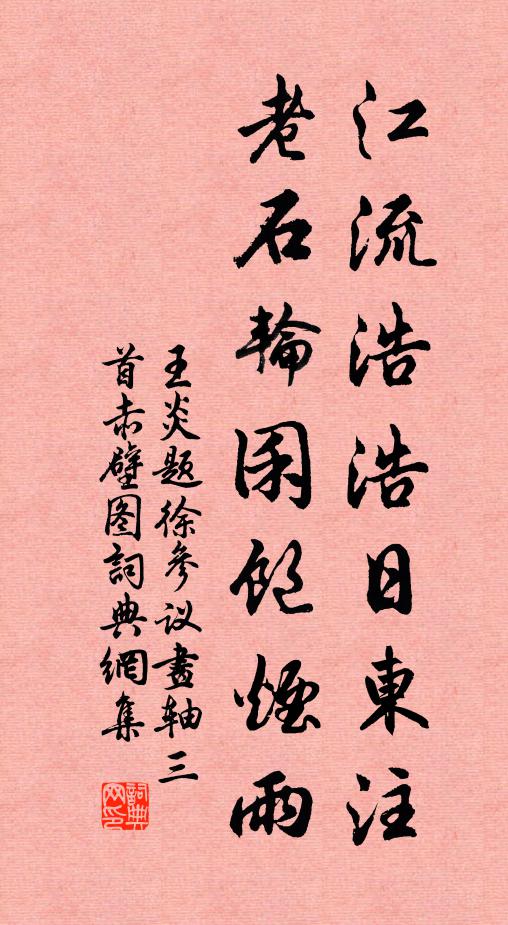 江流浩浩日東注
老石輪囷飽煙雨
王炎题徐參议畫軸三
首赤壁图詞典網集
詞典
网印